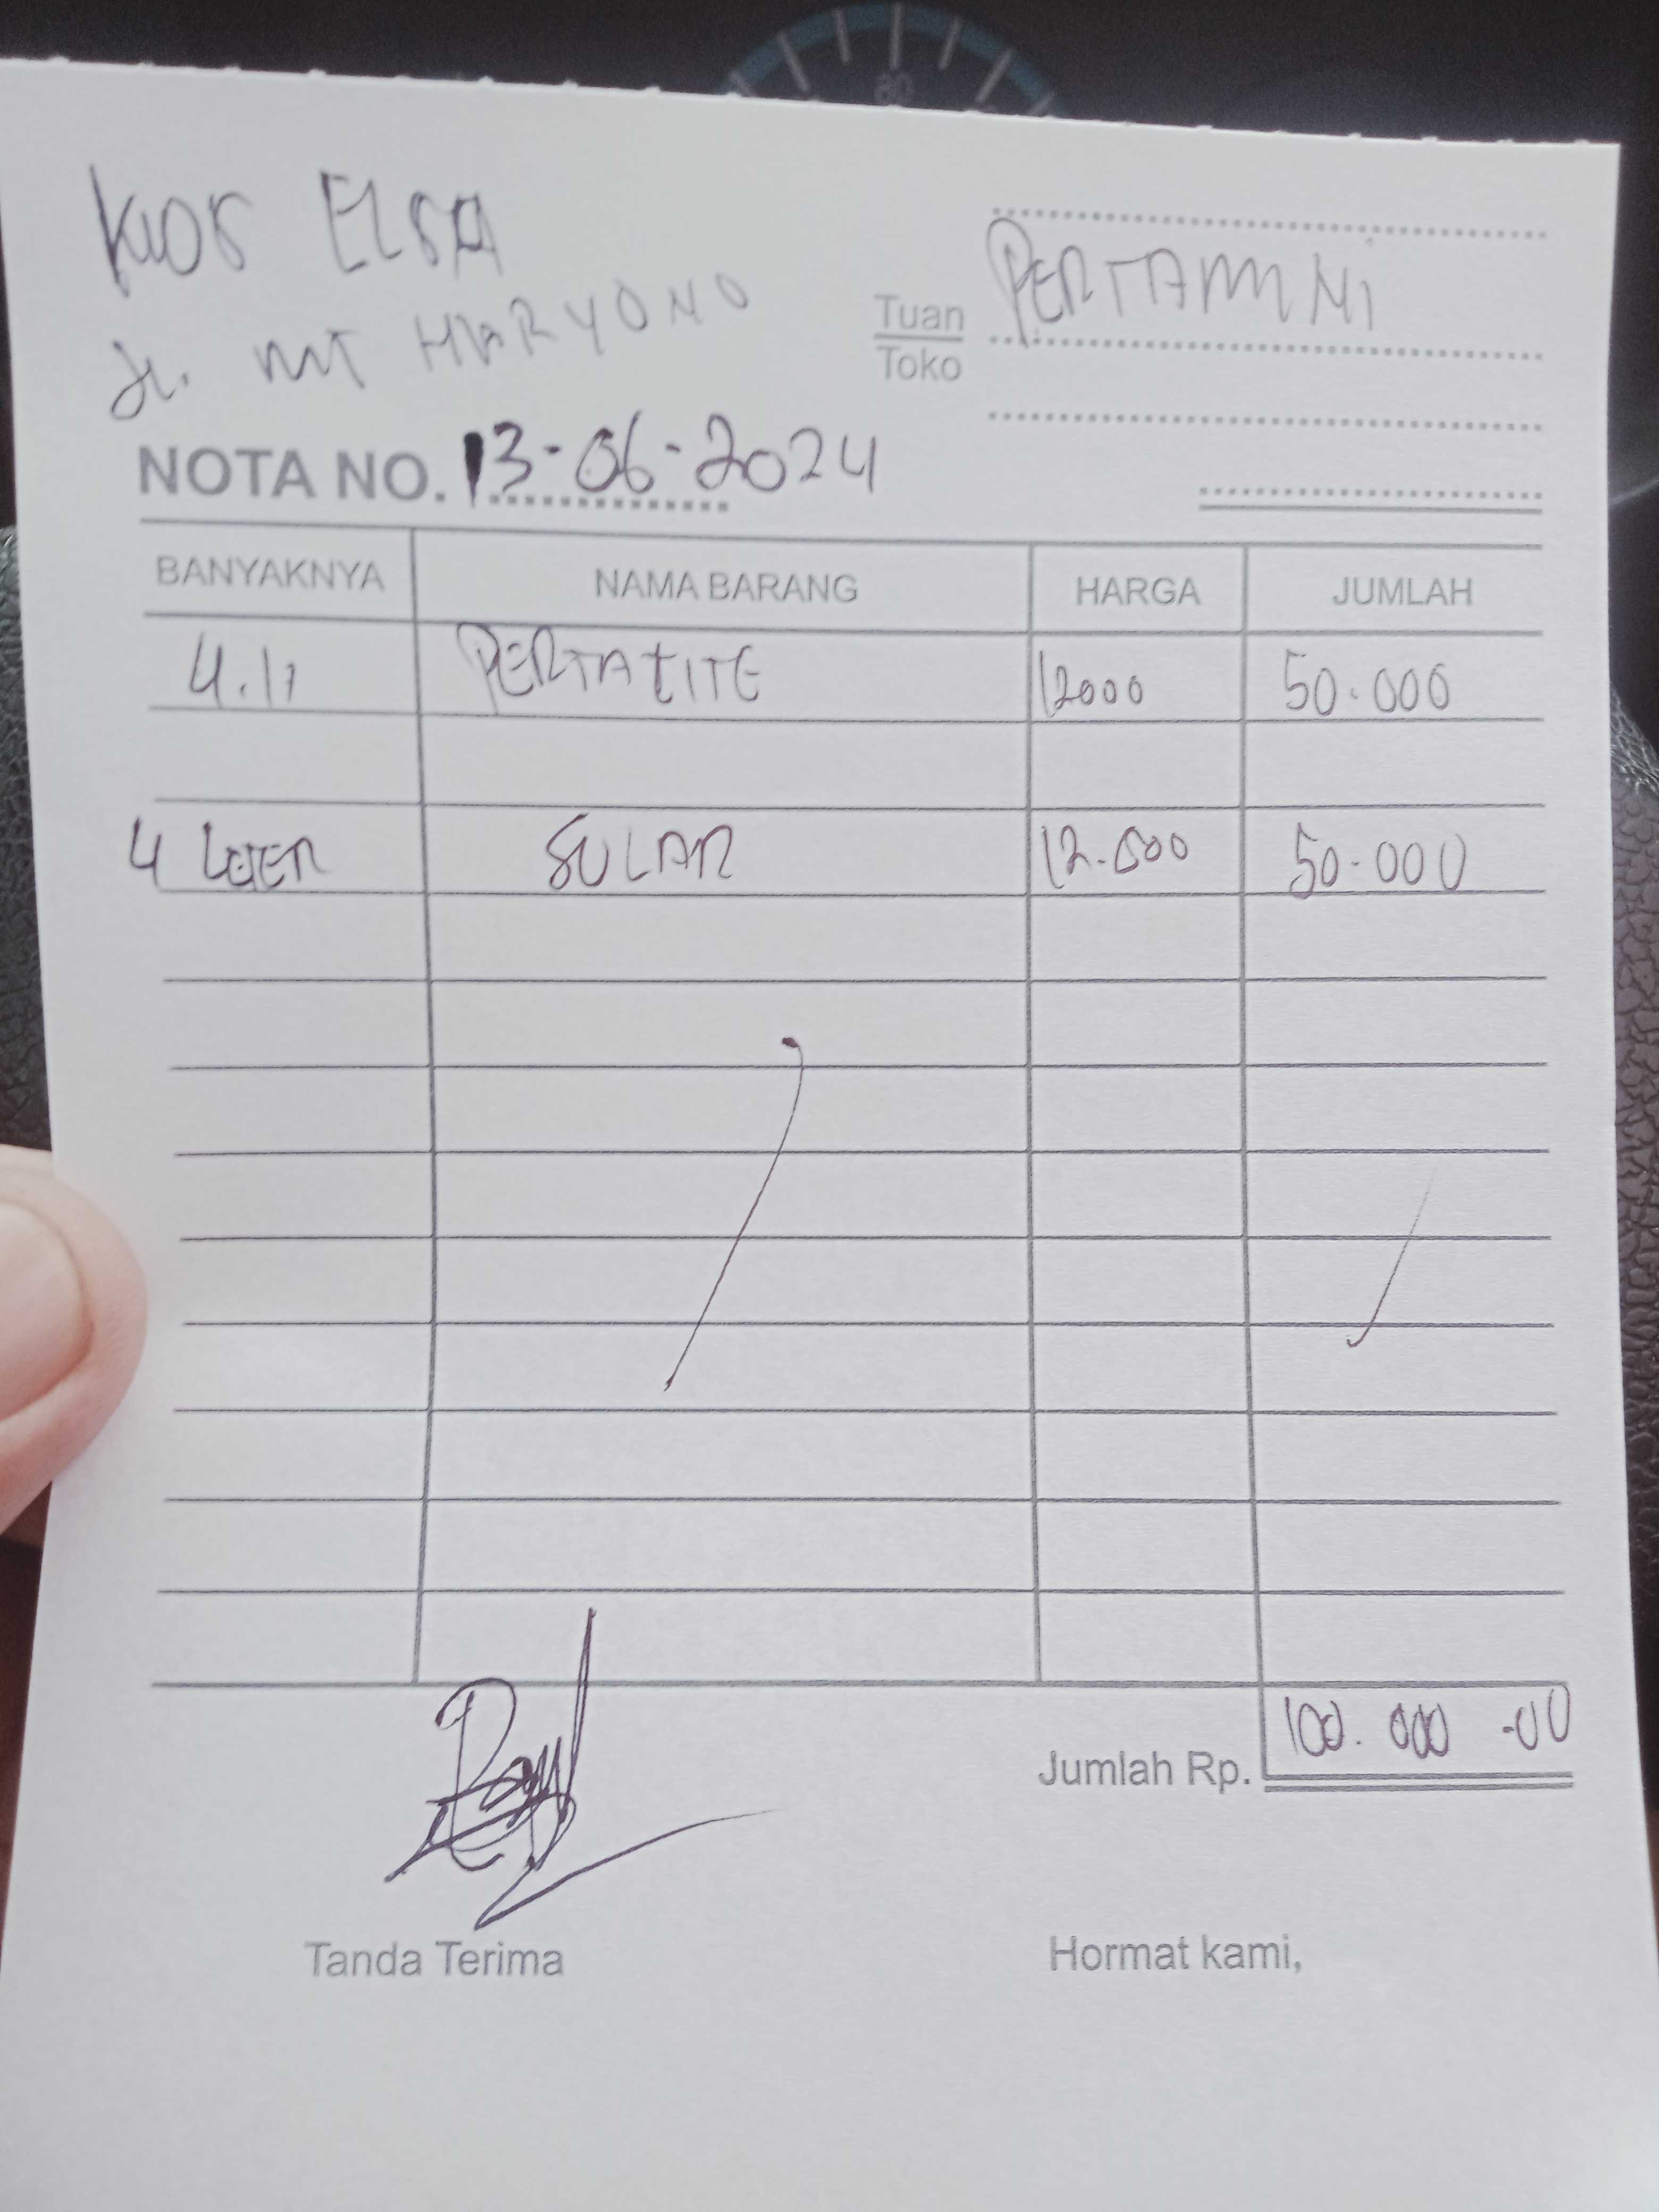 80
KIOS ELSA
PERTAMINI
Jl. MT HARYONO
Tuan
Toko
NOTA NO. 13-06-2024
BANYAKNYA NAMA BARANG HARGA JUMLAH
4.11 PERTALITE 12000 50.000
4 LITER SOLAR 12.500 50.000
Jumlah Rp. 100.000 -00
Tanda Terima Hormat kami,